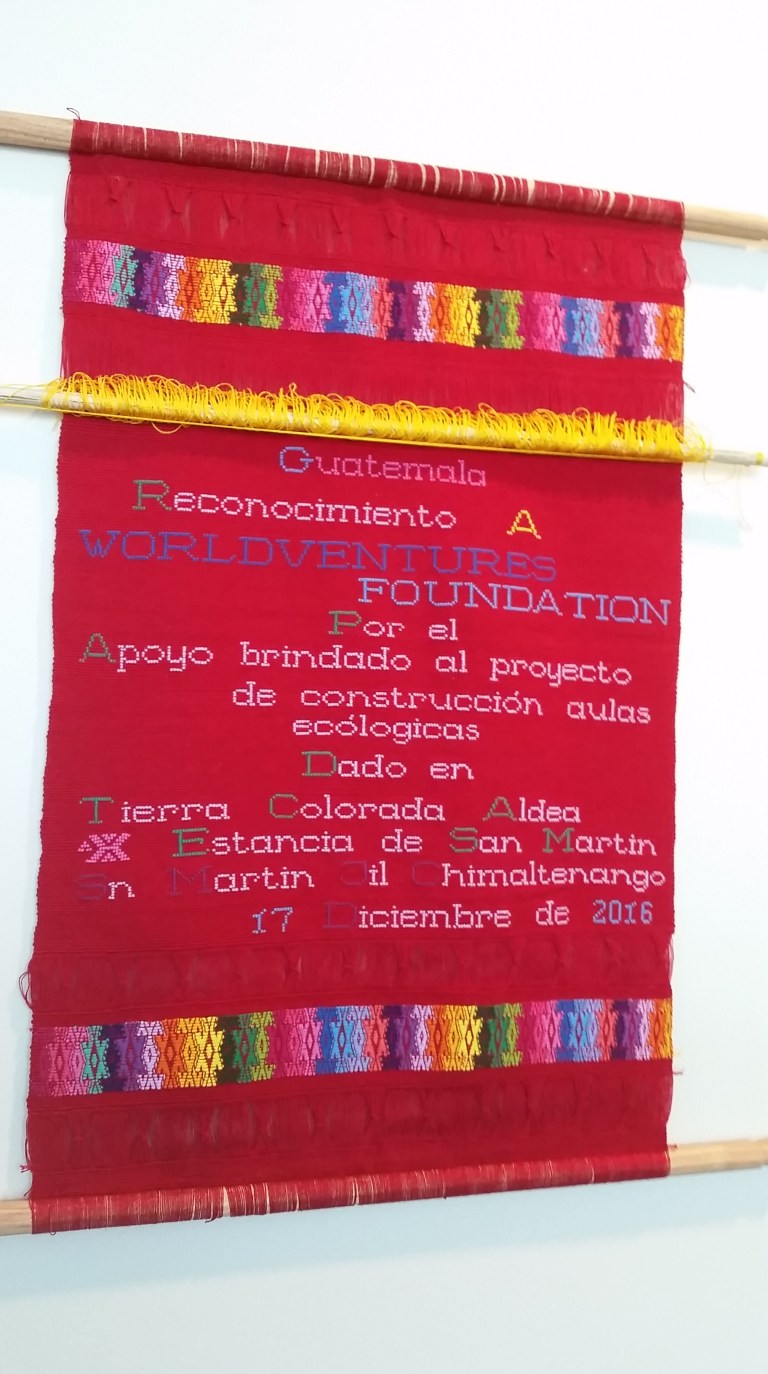 Guatemala
Reconocimiento A
WORLDVENTURES
FOUNDATION
Por el
Apoyo brindado al proyecto
de construcción aulas
ecólogicas
Dado en
Tierra Colorada Aldea
Estancia de San Martin
Sn Martin Jil Chimaltenango
17 Diciembre de 2016